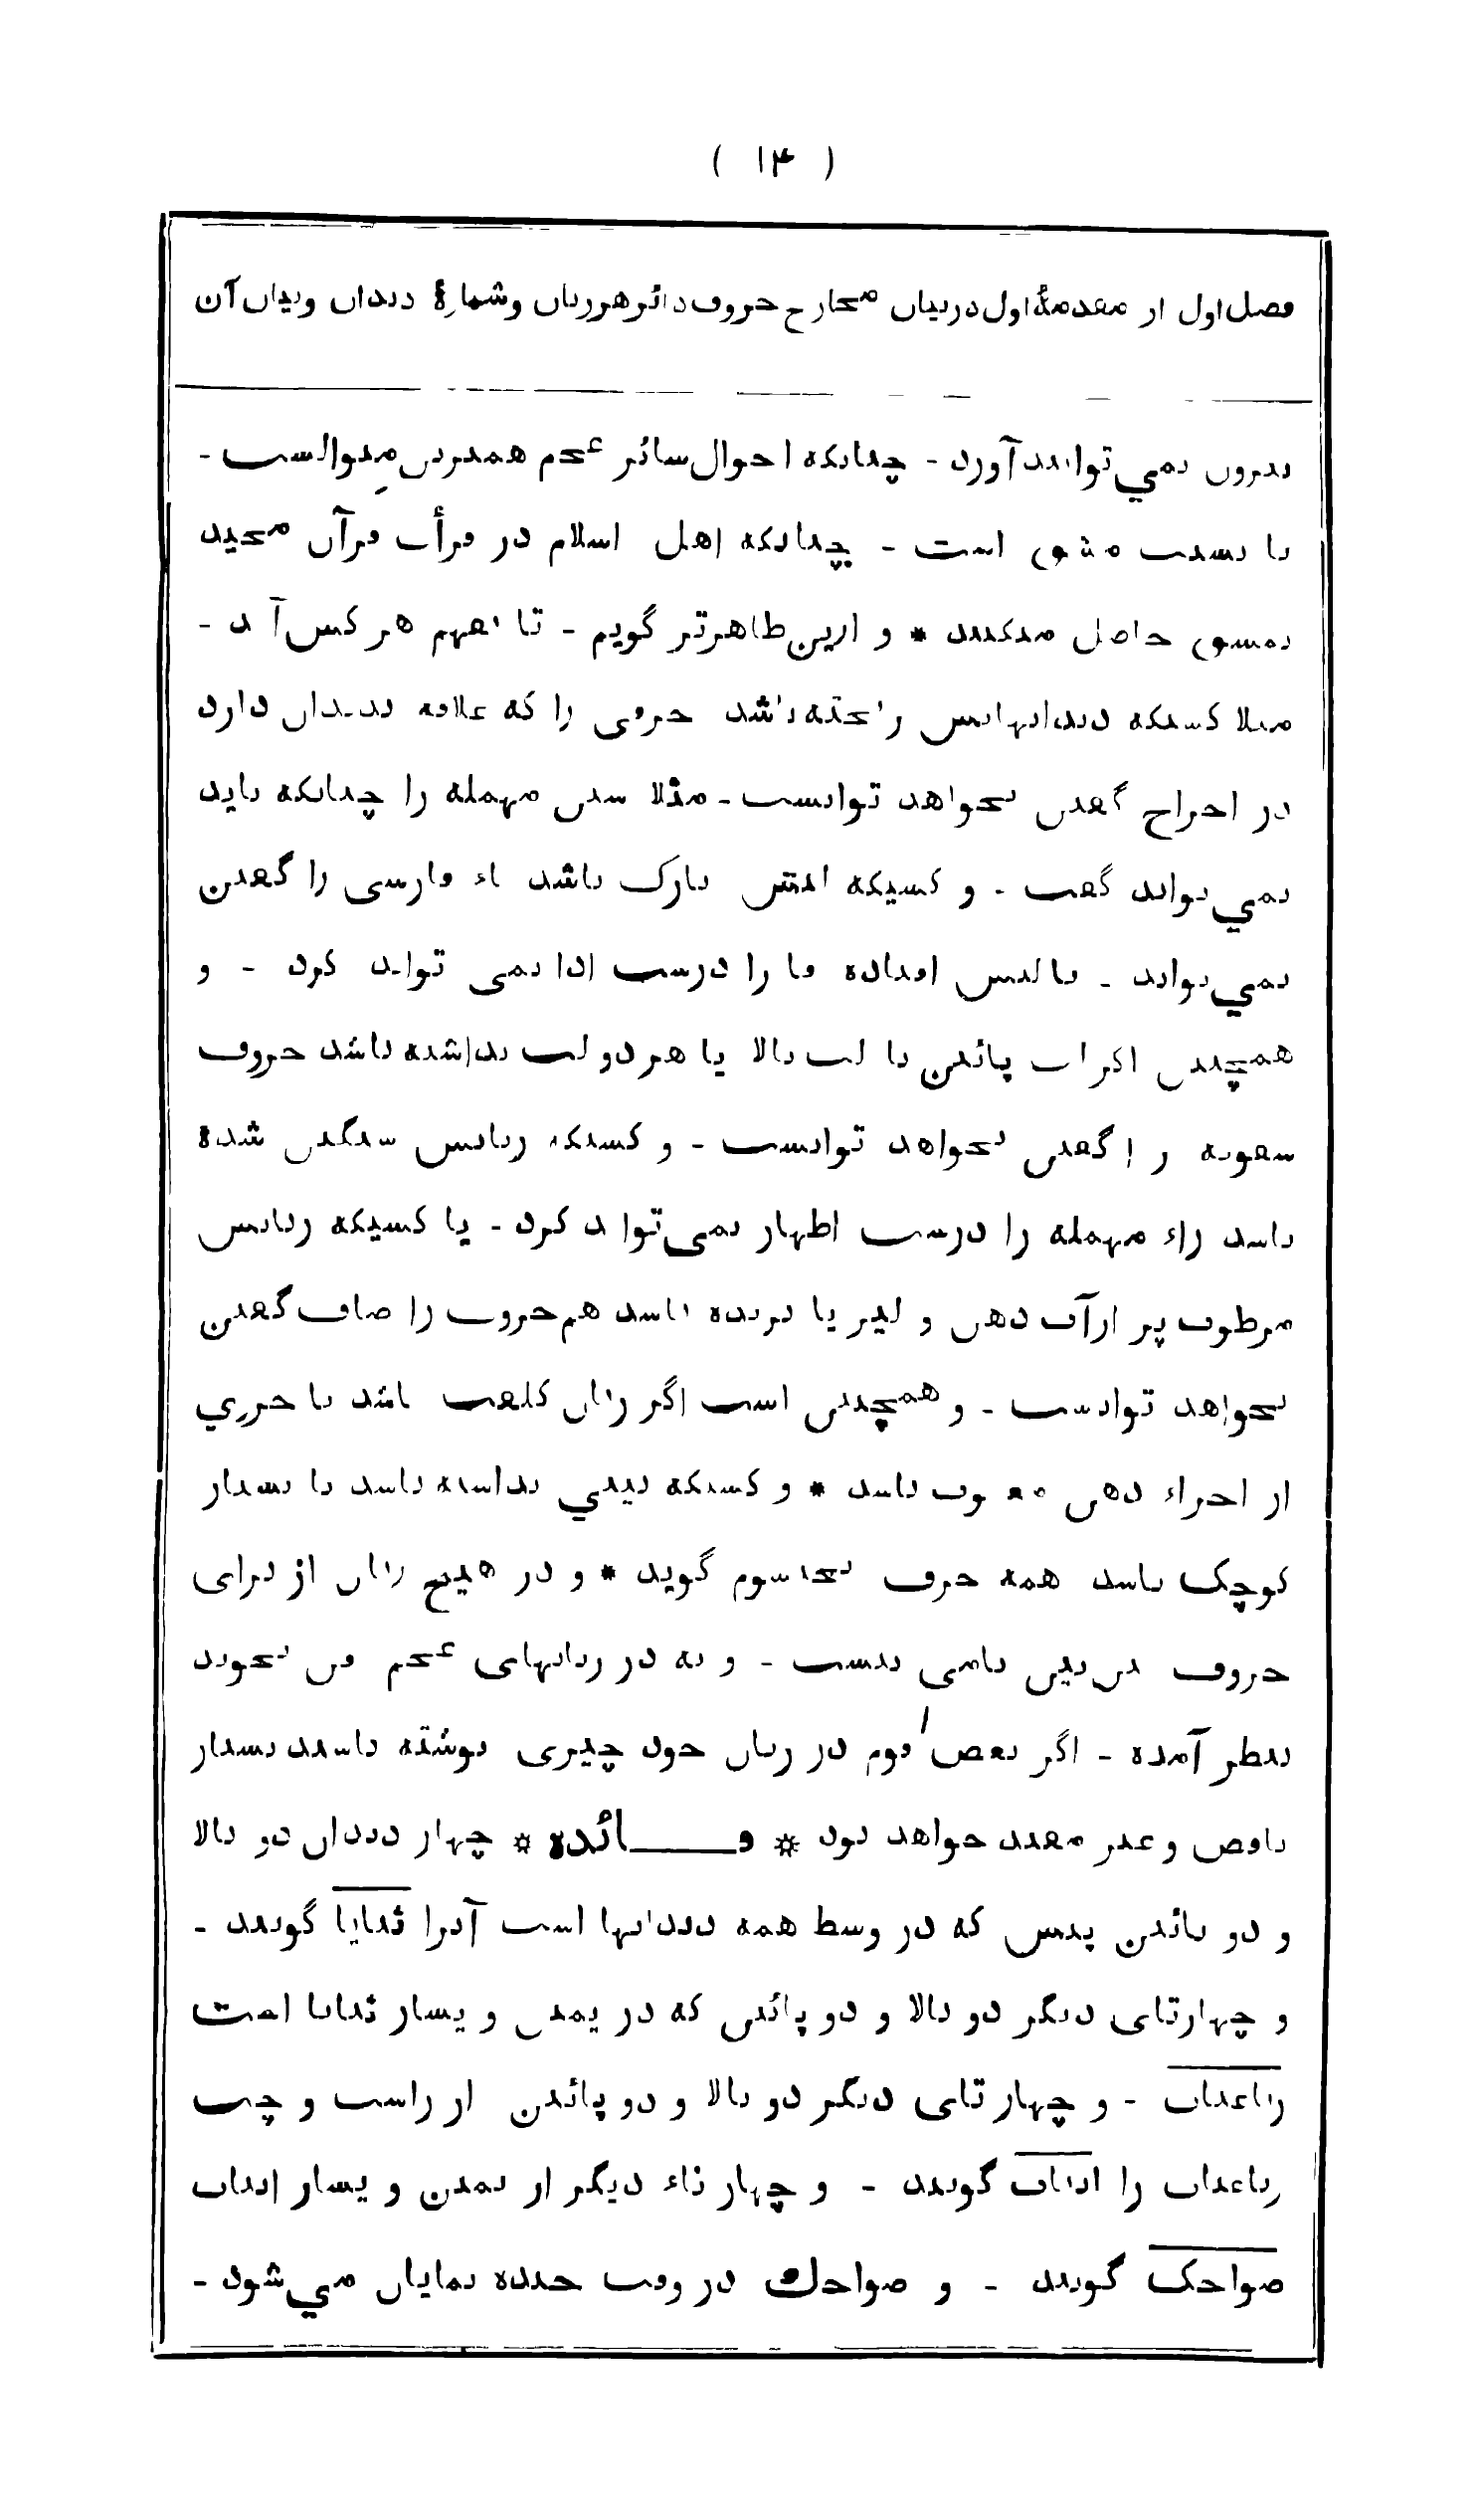 ( ۱۴ )
فصل اول از مقدمهٔ اول در بیان مخارج حروف دائر هر زبان و شمارهٔ دندان و بیان آن
بیرون نمي توانند آورد - چنانکه احوال سائر عجم همدرین منوالست -
تا نسبت مشق است - چنانکه اهل اسلام در قرأت قرآن مجید
بمشق حاصل میکنند * و ازین ظاهرتر گویم - تا بفهم هر کس آید -
مثلا کسیکه دندانهایش ریخته باشد حروفی را که علاقه بدندان دارد
در اخراج گفتن نخواهد توانست - مثلا سین مهمله را چنانکه باید
نمي تواند گفت - و کسیکه لبش بارک باشد باء فارسی را گفتن
نمي تواند - یا لبش افتاده فا را درست ادا نمی تواند کرد - و
همچنین اگر لب پائین یا لب بالا یا هر دو لب نداشته باشد حروف
شفویه را گفتن نخواهد توانست - و کسیکه زبانش سنگین شده
باشد راء مهمله را درست اظهار نمی تواند کرد - یا کسیکه زبانش
مرطوب پر از آب دهن و لیز یا بریده باشد هم حروف را صاف گفتن
نخواهد توانست - و همچنین است اگر زبان کلفت باشد یا جزوي
از اجزاء دهن معیوب باشد * و کسیکه بیني نداشته باشد یا بسیار
کوچک باشد همه حرف بخیاشوم گوید * و در هیچ زبان از برای
حروف این بین نامی نیست - و نه در زبانهای عجم فن تجوید
بنظر آمده - اگر بعض قوم در زبان خود چیزی نوشته باشند بسیار
ناقص و غیر مفید خواهد بود * فــائده * چهار دندان دو بالا
و دو پائین پیش که در وسط همه دندانها است آنرا ثنایا گویند -
و چهارتای دیگر دو بالا و دو پائین که در یمین و یسار ثنایا است
رباعیات - و چهار تای دیگر دو بالا و دو پائین از راست و چپ
رباعیات را انیاب گویند - و چهار تاء دیگر از یمین و یسار انیاب
ضواحک گویند - و ضواحك در وقت خنده نمایان مي شود -